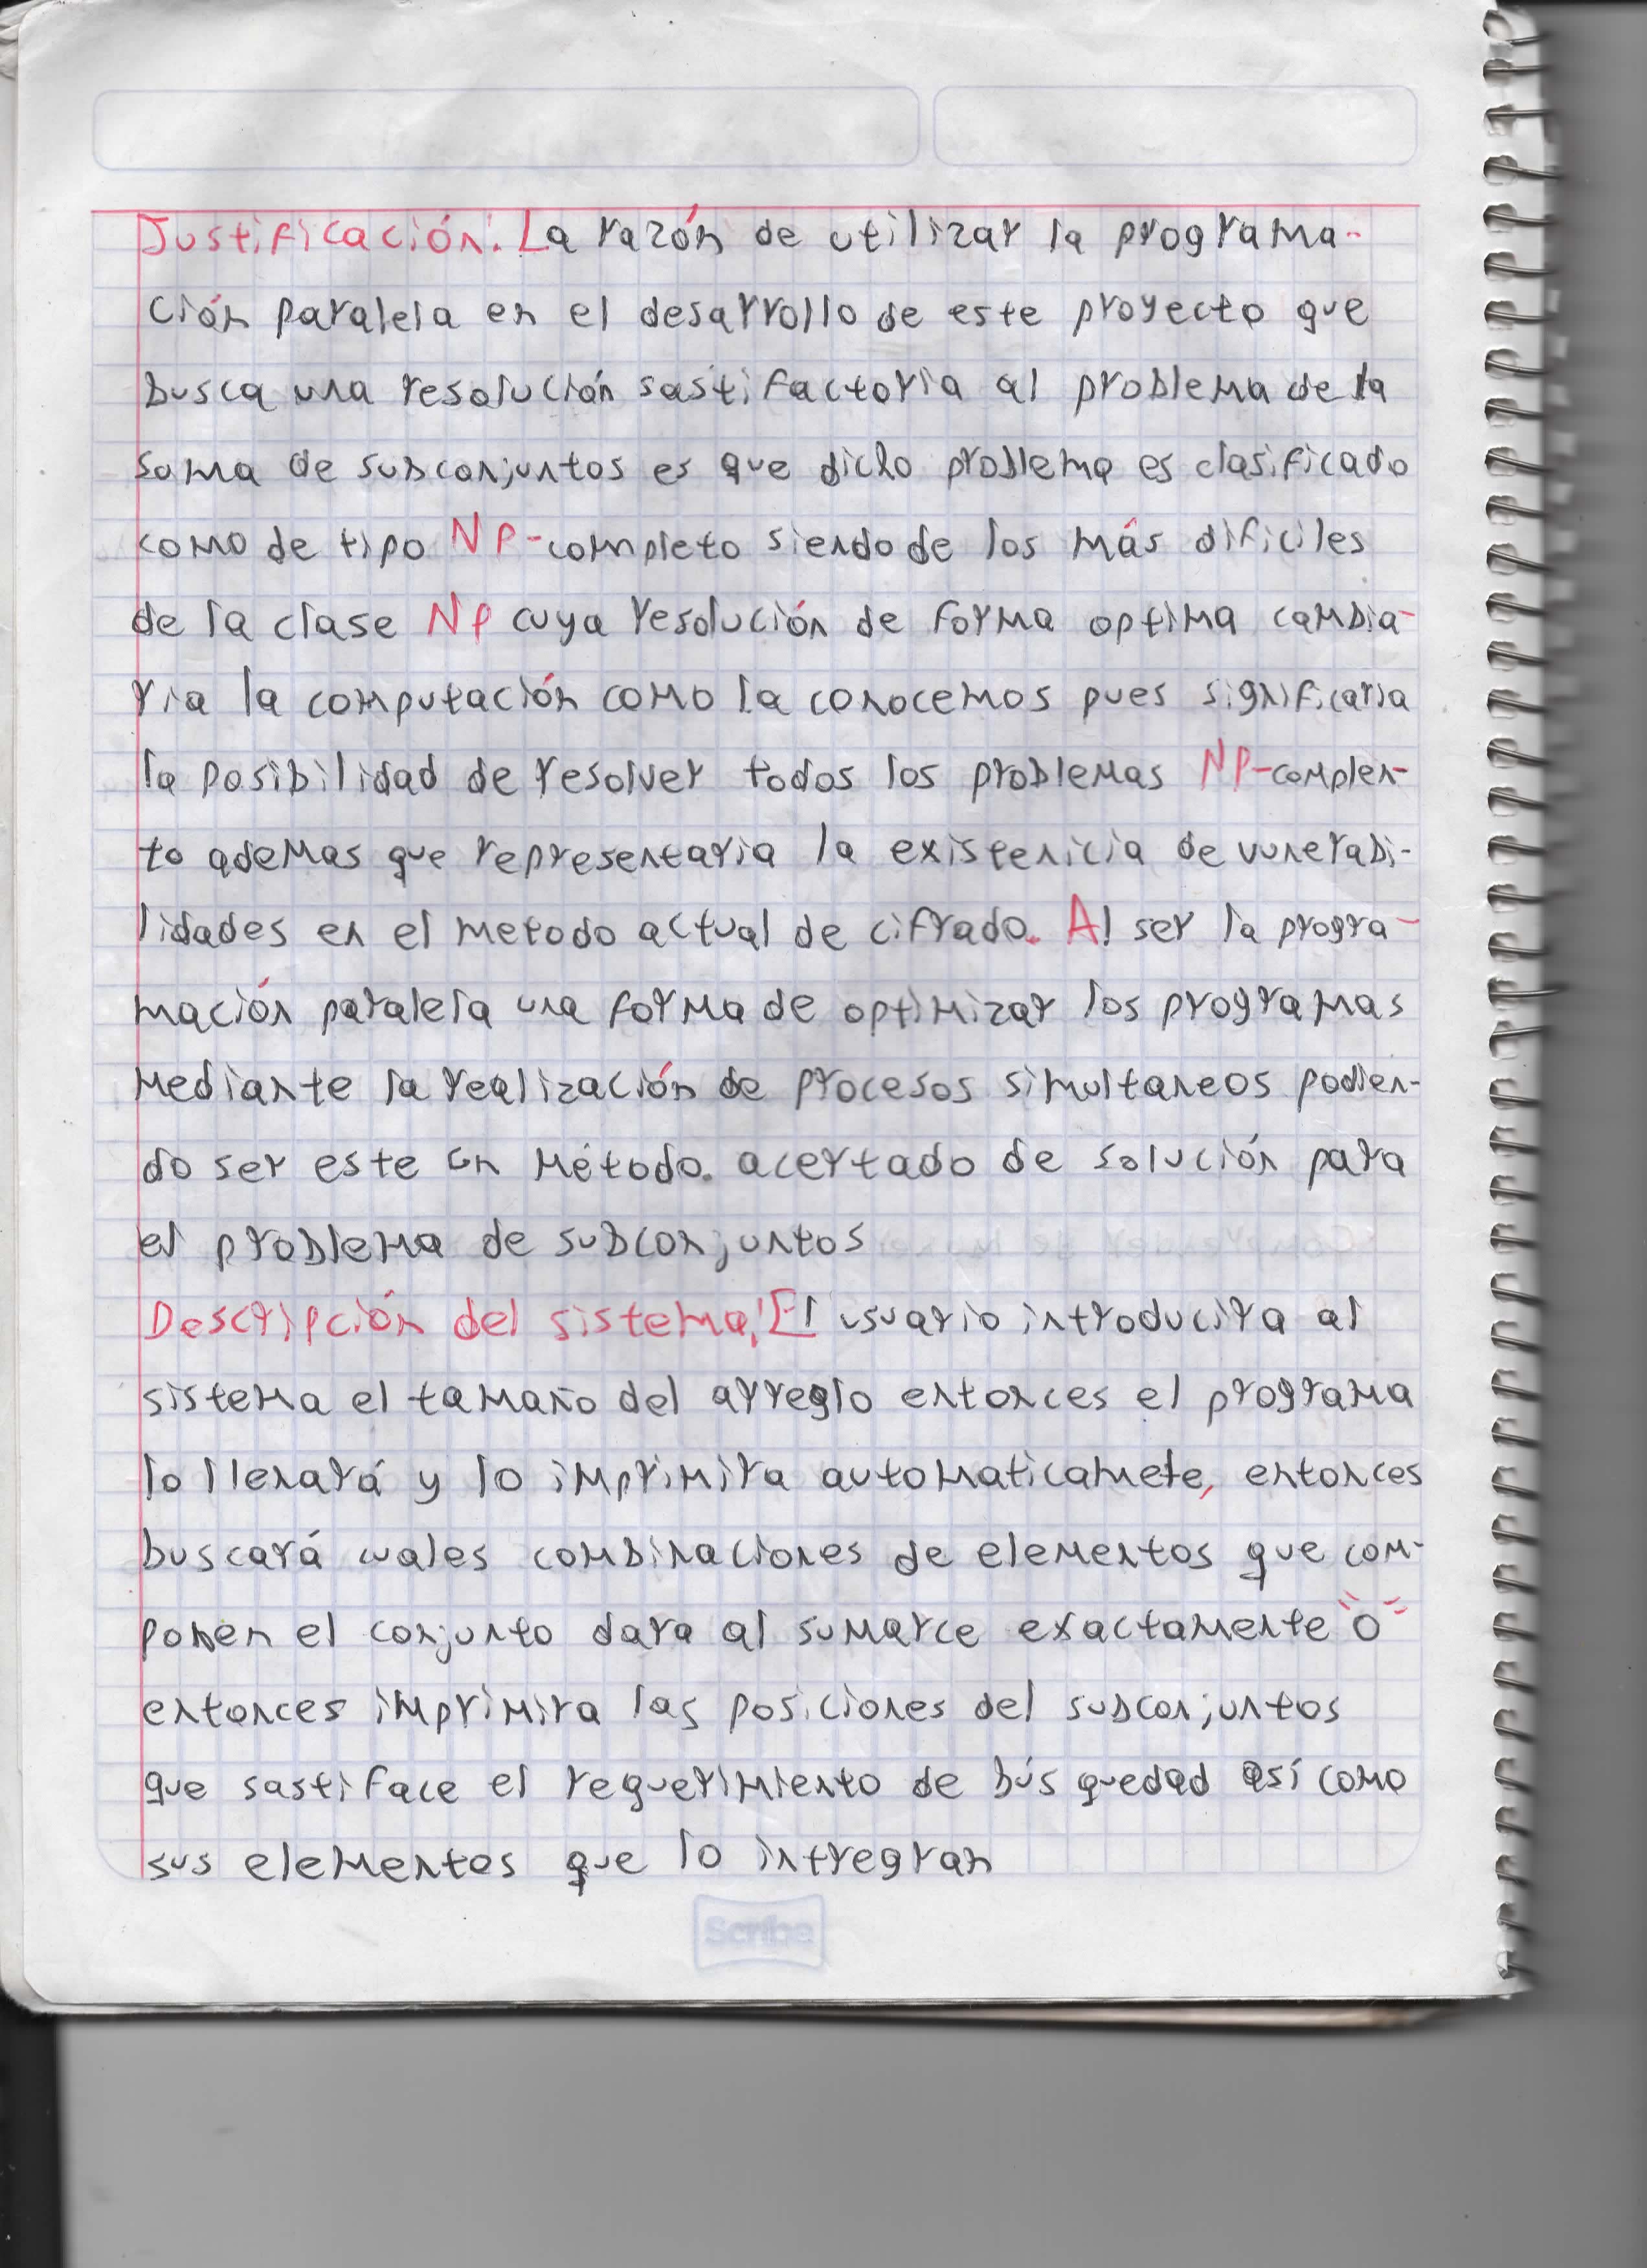 Justificación: La razón de utilizar la programa-
ción paralela en el desarrollo de este proyecto que
busca una resolución sastifactoria al problema de la
soma de subconjuntos es que dicho problema es clasificado
como de tipo NP-completo siendo de los más dificiles
de la clase NP cuya resolución de forma optima cambia-
ria la computación como la conocemos pues significaria
la posibilidad de resolver todos los problemas NP-complen-
to ademas que representaria la existenicia de vunerabi-
lidades en el metodo actual de cifrado. Al ser la progra-
mación paralela una forma de optimizar los programas
mediante la realización de procesos simultaneos podien-
do ser este un método. acertado de solución para
el problema de subconjuntos
Descripción del sistema: El usuario introducira al
sistema el tamaño del arreglo entonces el programa
lo llenará y lo imprimira automaticamete, entonces
buscará cuales combinaciones de elementos que com-
ponen el conjunto dara al sumarce exactamente "0"
entonces imprimira las posiciones del subconjuntos
que sastiface el requerimiento de búsquedad así como
sus elementos que lo intregran
Scribe